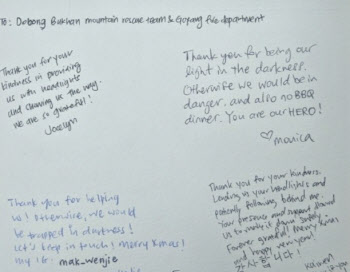 To: Dobong Bukhan mountain rescue team & Goyang fire department
Thank you for your
kindness in providing
us with headlights
and showing us the way.
we are so grateful!
Jocelyn
Thank you for being our
light in the darkness.
Otherwise we would be in
danger, and also no BBQ
dinner. You are our HERO!
♡monica
Thank you for helping
us! Otherwise, we would
be trapped in darkness!
Let's keep in touch! Merry Xmas!
my IG: mak_wenjie
Thank you for your kindness.
Lending us your headlights and
patiently following behind me.
Your presence and support
us to make it down safely
Forever grateful! Merry Xmas
and happy new year!
감사합니다!